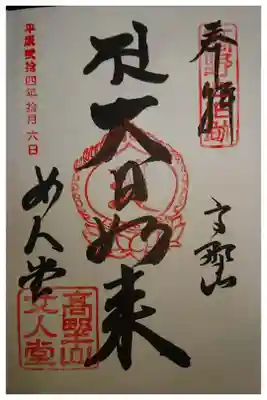 奉拝
高野山
大日如来
女人堂
平成弐拾四年拾月六日
高野山
女人堂